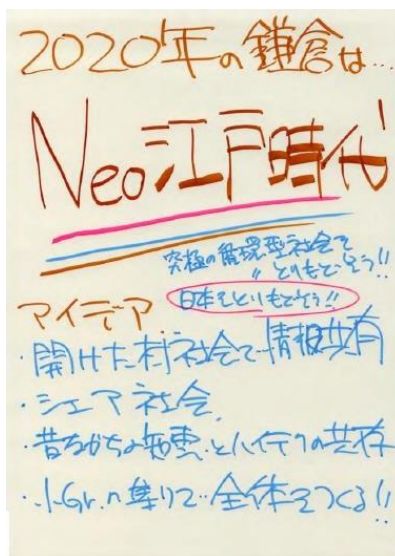 2020年の鎌倉は…
Neo江戸時代
究極の循環型社会を
〃 とりもどそう!!
日本をとりもどそう!!
アイデア
・開けた村社会で情報共有
・シェア社会
・昔ながらの知恵とハイテクの共存
・小Gr.の集りで全体をつくる!!